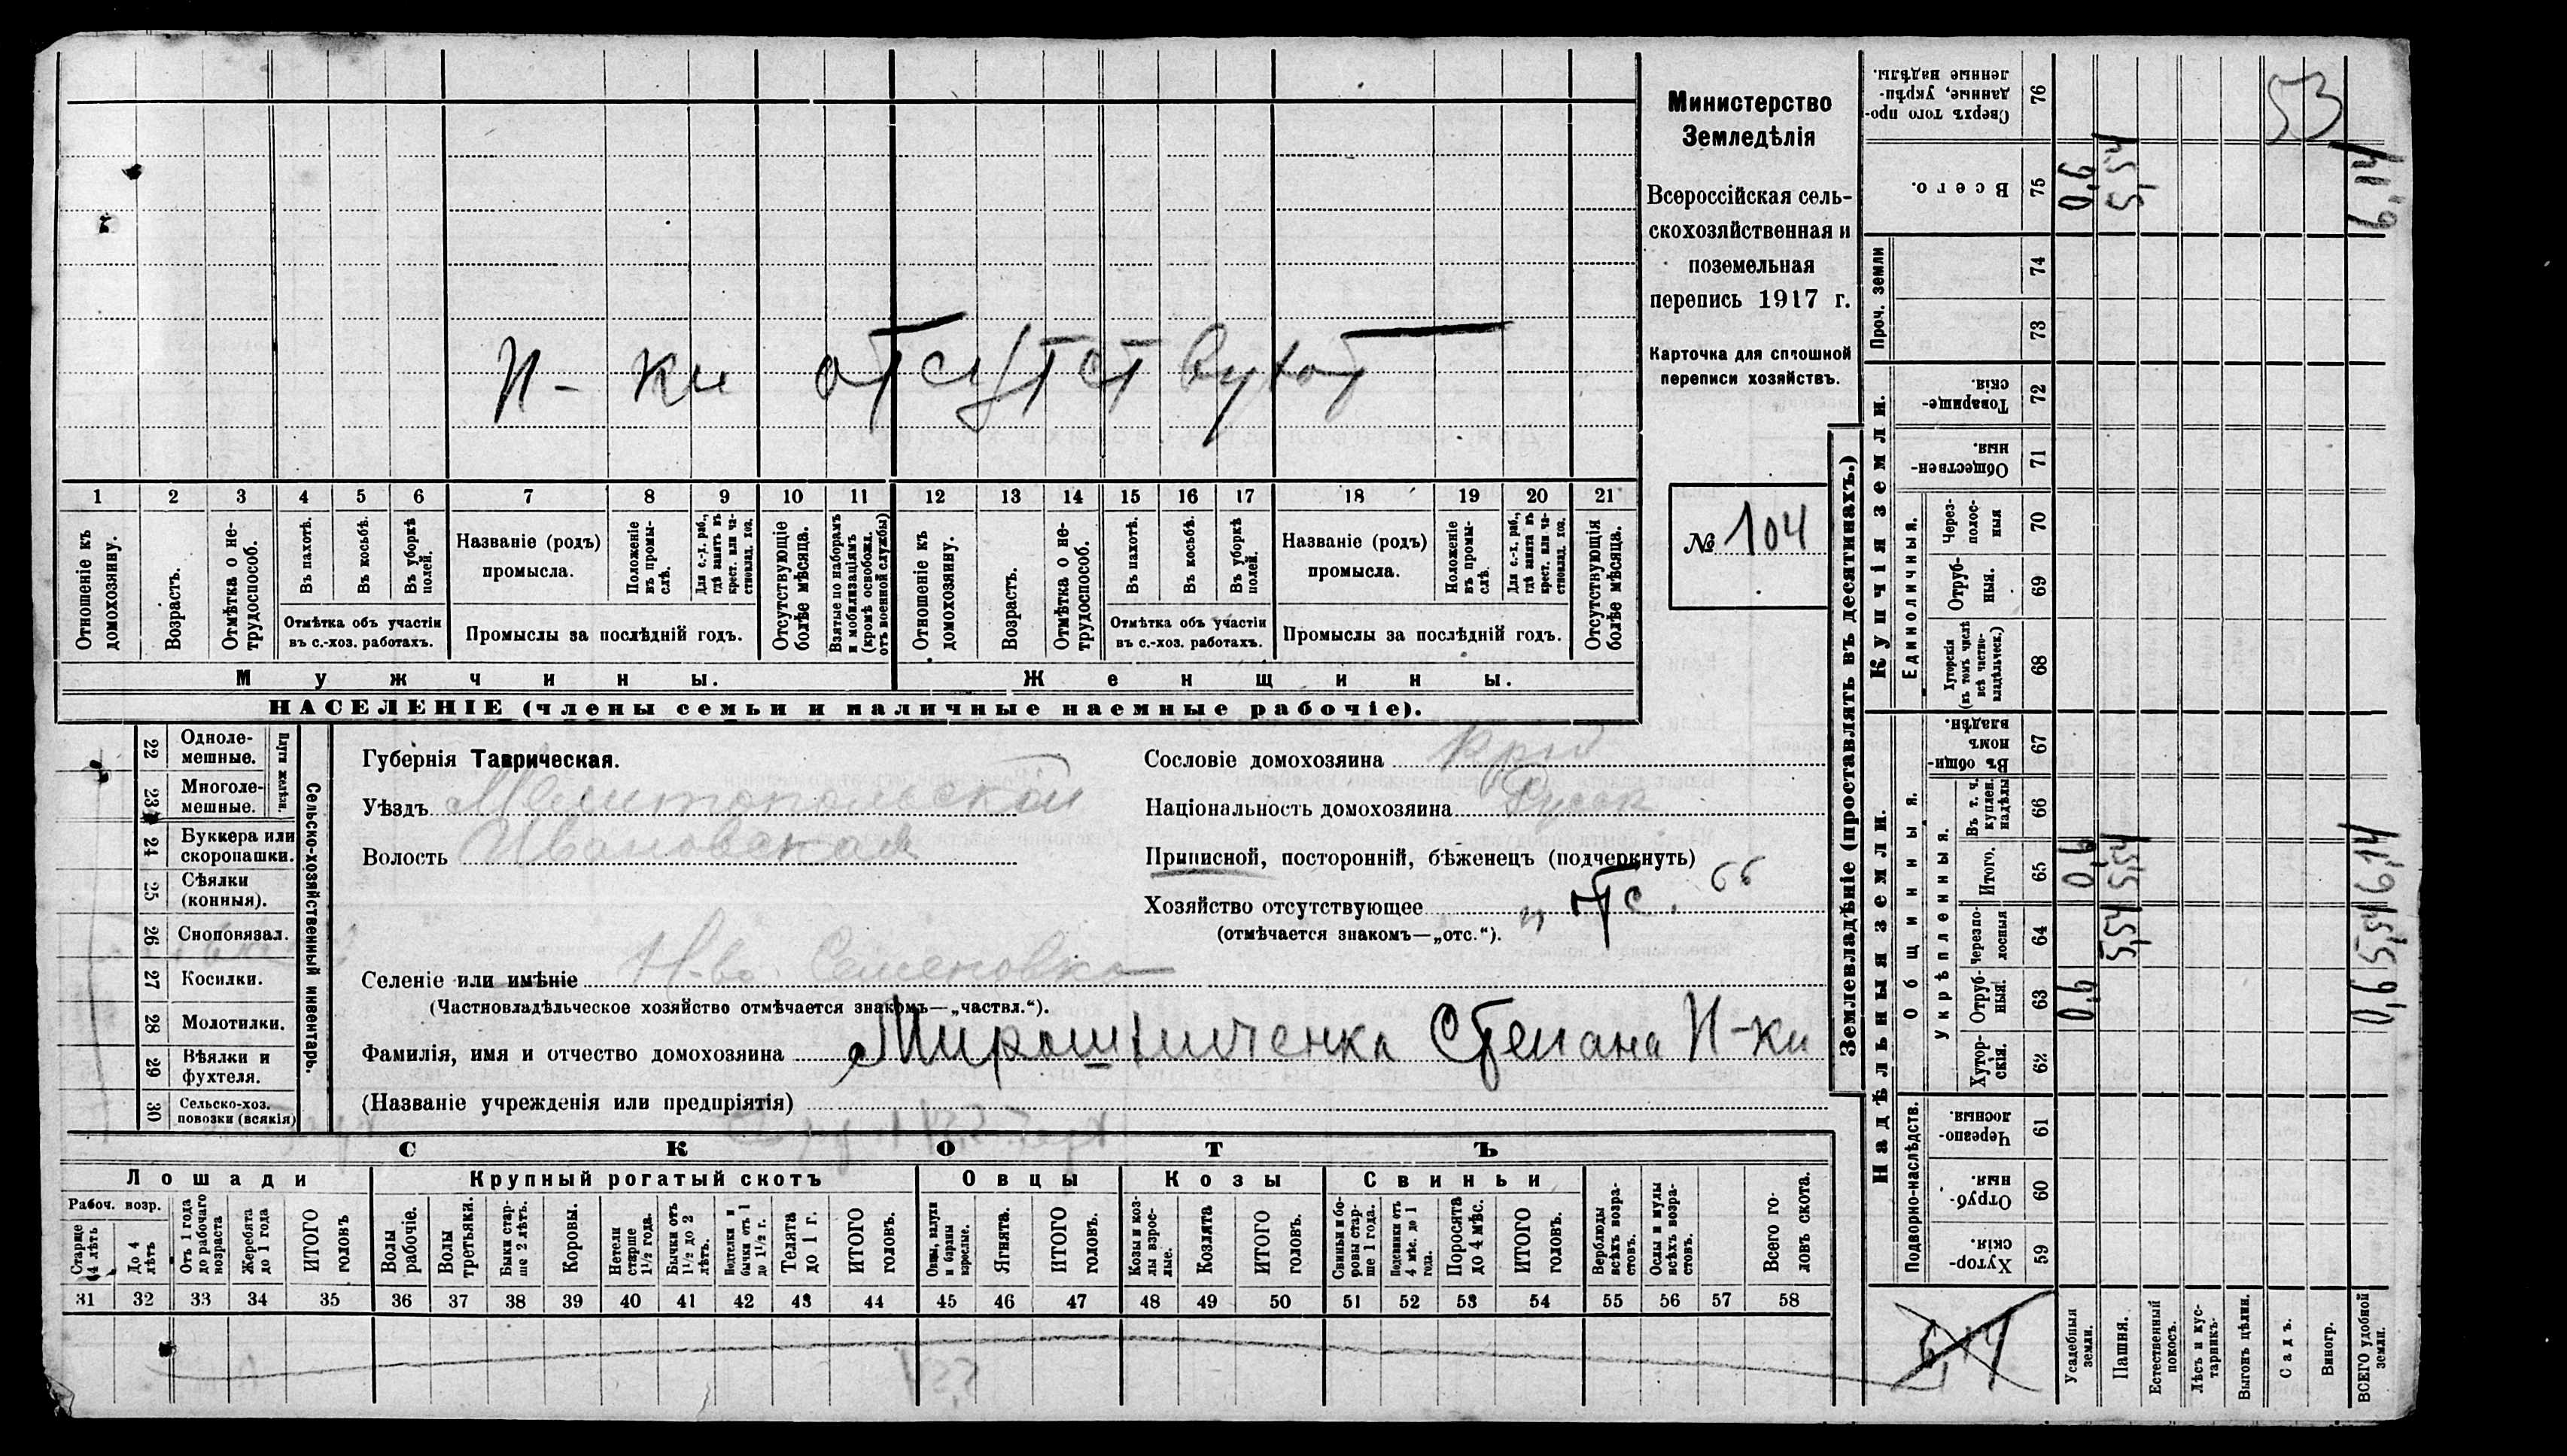 Министерство
Земледѣлія
Всероссійская сель-
скохозяйственная и
поземельная
перепись 1917 г.
Карточка для сплошной
переписи хозяйствъ.
№ 104
Н-ки отсутствуют
1 2 3 4 5 6 7 8 9 10 11 12 13 14 15 16 17 18 19 20 21
Отношеніе къ домохозяину.
Возрастъ.
Отмѣтка о не-трудоспособ.
Въ пахотѣ.
Въ косьбѣ.
Въ уборкѣ полей.
Отмѣтка объ участіи
въ с.-хоз. работахъ.
Названіе (родъ)
промысла.
Положеніе въ промы-слѣ.
Для с.-х. раб., гдѣ занятъ въ крест. или ча-стновлад. хоз.
Промыслы за послѣдній годъ.
Отсутствующіе болѣе мѣсяца.
Взятые по наборамъ и мобилизаціямъ (кромѣ освобожд. отъ военной службы)
Отношеніе къ домохозяину.
Возрастъ.
Отмѣтка о не-трудоспособ.
Въ пахотѣ.
Въ косьбѣ.
Въ уборкѣ полей.
Отмѣтка объ участіи
въ с.-хоз. работахъ.
Названіе (родъ)
промысла.
Положеніе въ промы-слѣ.
Для с.-х. раб., гдѣ занята въ крест. или ча-стновлад. хоз.
Промыслы за послѣдній годъ.
Отсутствующія болѣе мѣсяца.
Мужчины.
Женщины.
НАСЕЛЕНІЕ (члены семьи и наличные наемные рабочіе).
22 Одноле-мешные.
23 Многоле-мешные.
Плуги желѣзн.
24 Буккера или скоропашки.
25 Сѣялки (конныя).
26 Сноповязал.
27 Косилки.
28 Молотилки.
29 Вѣялки и фухтеля.
30 Сельско-хоз. повозки (всякія)
Сельско-хозяйственный инвентарь.
Губернія Таврическая.
Уѣздъ Мелитопольской
Волость Ивановская
Сословіе домохозяина
Національность домохозяина Русск
Приписной, посторонній, бѣженецъ (подчеркнуть)
Хозяйство отсутствующее отс. 66
(отмѣчается знакомъ—„отс.“).
Селеніе или имѣніе Н-во Семеновка
(Частновладѣльческое хозяйство отмѣчается знакомъ—„частвл.“).
Фамилія, имя и отчество домохозяина Мирошниченка Степана Н-ки
(Названіе учрежденія или предпріятія)
СКОТЪ
Лошади
Крупный рогатый скотъ
Овцы
Козы
Свиньи
Рабоч. возр.
Старше 4 лѣтъ
До 4 лѣтъ
Отъ 1 года до рабочаго возраста
Жеребята до 1 года
ИТОГО головъ
Волы рабочіе.
Волы третьяки.
Быки стар-ше 2 лѣтъ.
Коровы.
Нетели старше 1½ года.
Бычки отъ 1½ до 2 лѣтъ.
Подтелки и бычки отъ 1 до 1½ г.
Телята до 1 г.
ИТОГО головъ.
Овцы, валухи и бараны взрослые.
Ягнята.
ИТОГО головъ.
Козы и коз-лы взрос-лые.
Козлята
ИТОГО головъ.
Свиньи и бо-ровы стар-ше 1 года.
Подсвинки отъ 4 мѣс. до 1 года.
Поросята до 4 мѣс.
ИТОГО головъ.
Верблюды всѣхъ возра-стовъ.
Ослы и мулы всѣхъ возра-стовъ.
Всего го-ловъ скота.
31 32 33 34 35 36 37 38 39 40 41 42 43 44 45 46 47 48 49 50 51 52 53 54 55 56 57 58
Землевладѣніе (проставлять въ десятинахъ.)
Надѣльныя земли.
Купчія земли.
Проч. земли
Подворно-наслѣдств.
Общинныя.
Укрѣпленныя.
Единоличныя.
Сверхъ того про-данные, укрѣп-ленные надѣлы. 76
53
Всего. 75 0,6 5,54 6,14
74
73
Товарище-скія. 72
Обществен-ныя. 71
Через-полос-ныя 70
Отруб-ныя. 69
Хуторскія (въ томъ числѣ всѣ частно-владѣльческ.) 68
Въ общин-номъ владѣн. 67
Въ т. ч. куплен. надѣлы 66
Итого. 65 0,6 5,54 6,14
Черезпо-лосныя 64 5,54 5,54
Отруб-ныя. 63 0,6 0,6
Хутор-скія. 62
Черезпо-лосныя. 61
Отруб-ныя. 60
Хутор-скія. 59
6,14
Усадебныя земли.
Пашня.
Естественный покосъ.
Лѣсъ и кус-тарникъ.
Выгонъ цѣлин.
Садъ.
Виногр.
ВСЕГО удобной земли.